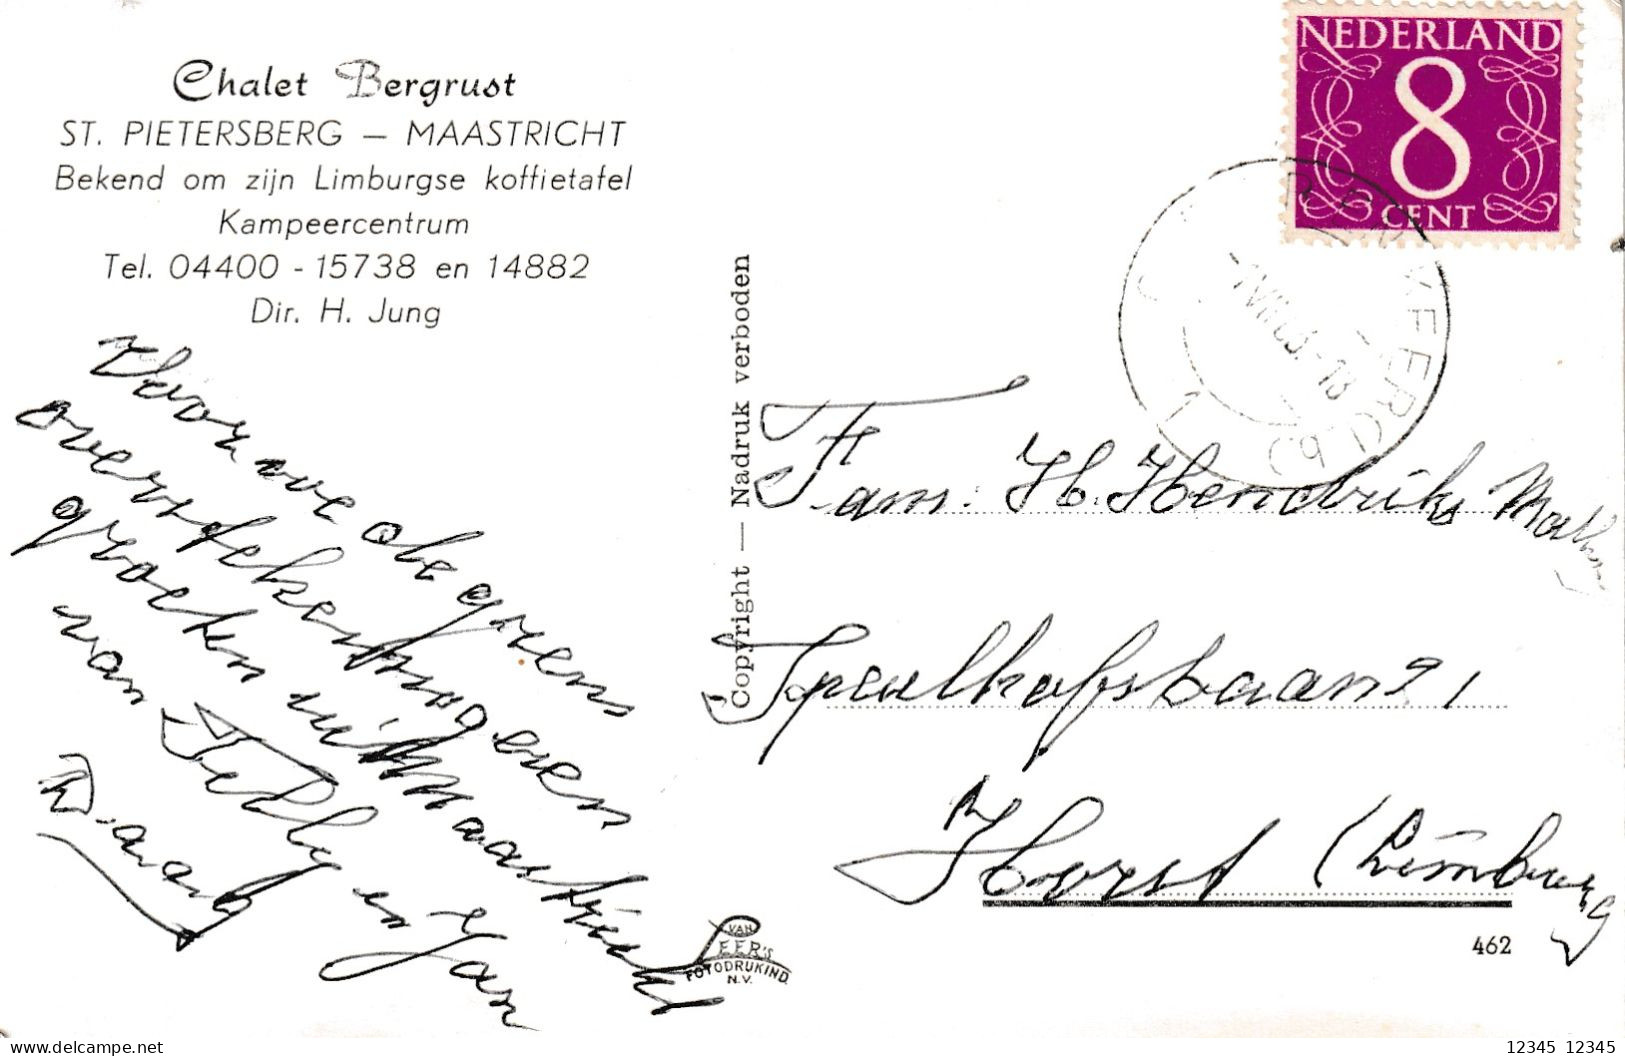 Chalet Bergrust
ST. PIETERSBERG — MAASTRICHT
Bekend om zijn Limburgse koffietafel
Kampeercentrum
Tel. 04400 - 15738 en 14882
Dir. H. Jung
Voor we de grens
overschrijden
groeten uit Maastricht
van Nelly en Jan
NEDERLAND
8
CENT
Copyright — Nadruk verboden
Fam. H. Hendriks
Horst (Limburg
VAN
LEER'S
FOTODRUKIND.
N.V.
462
www.delcampe.net
12345 12345